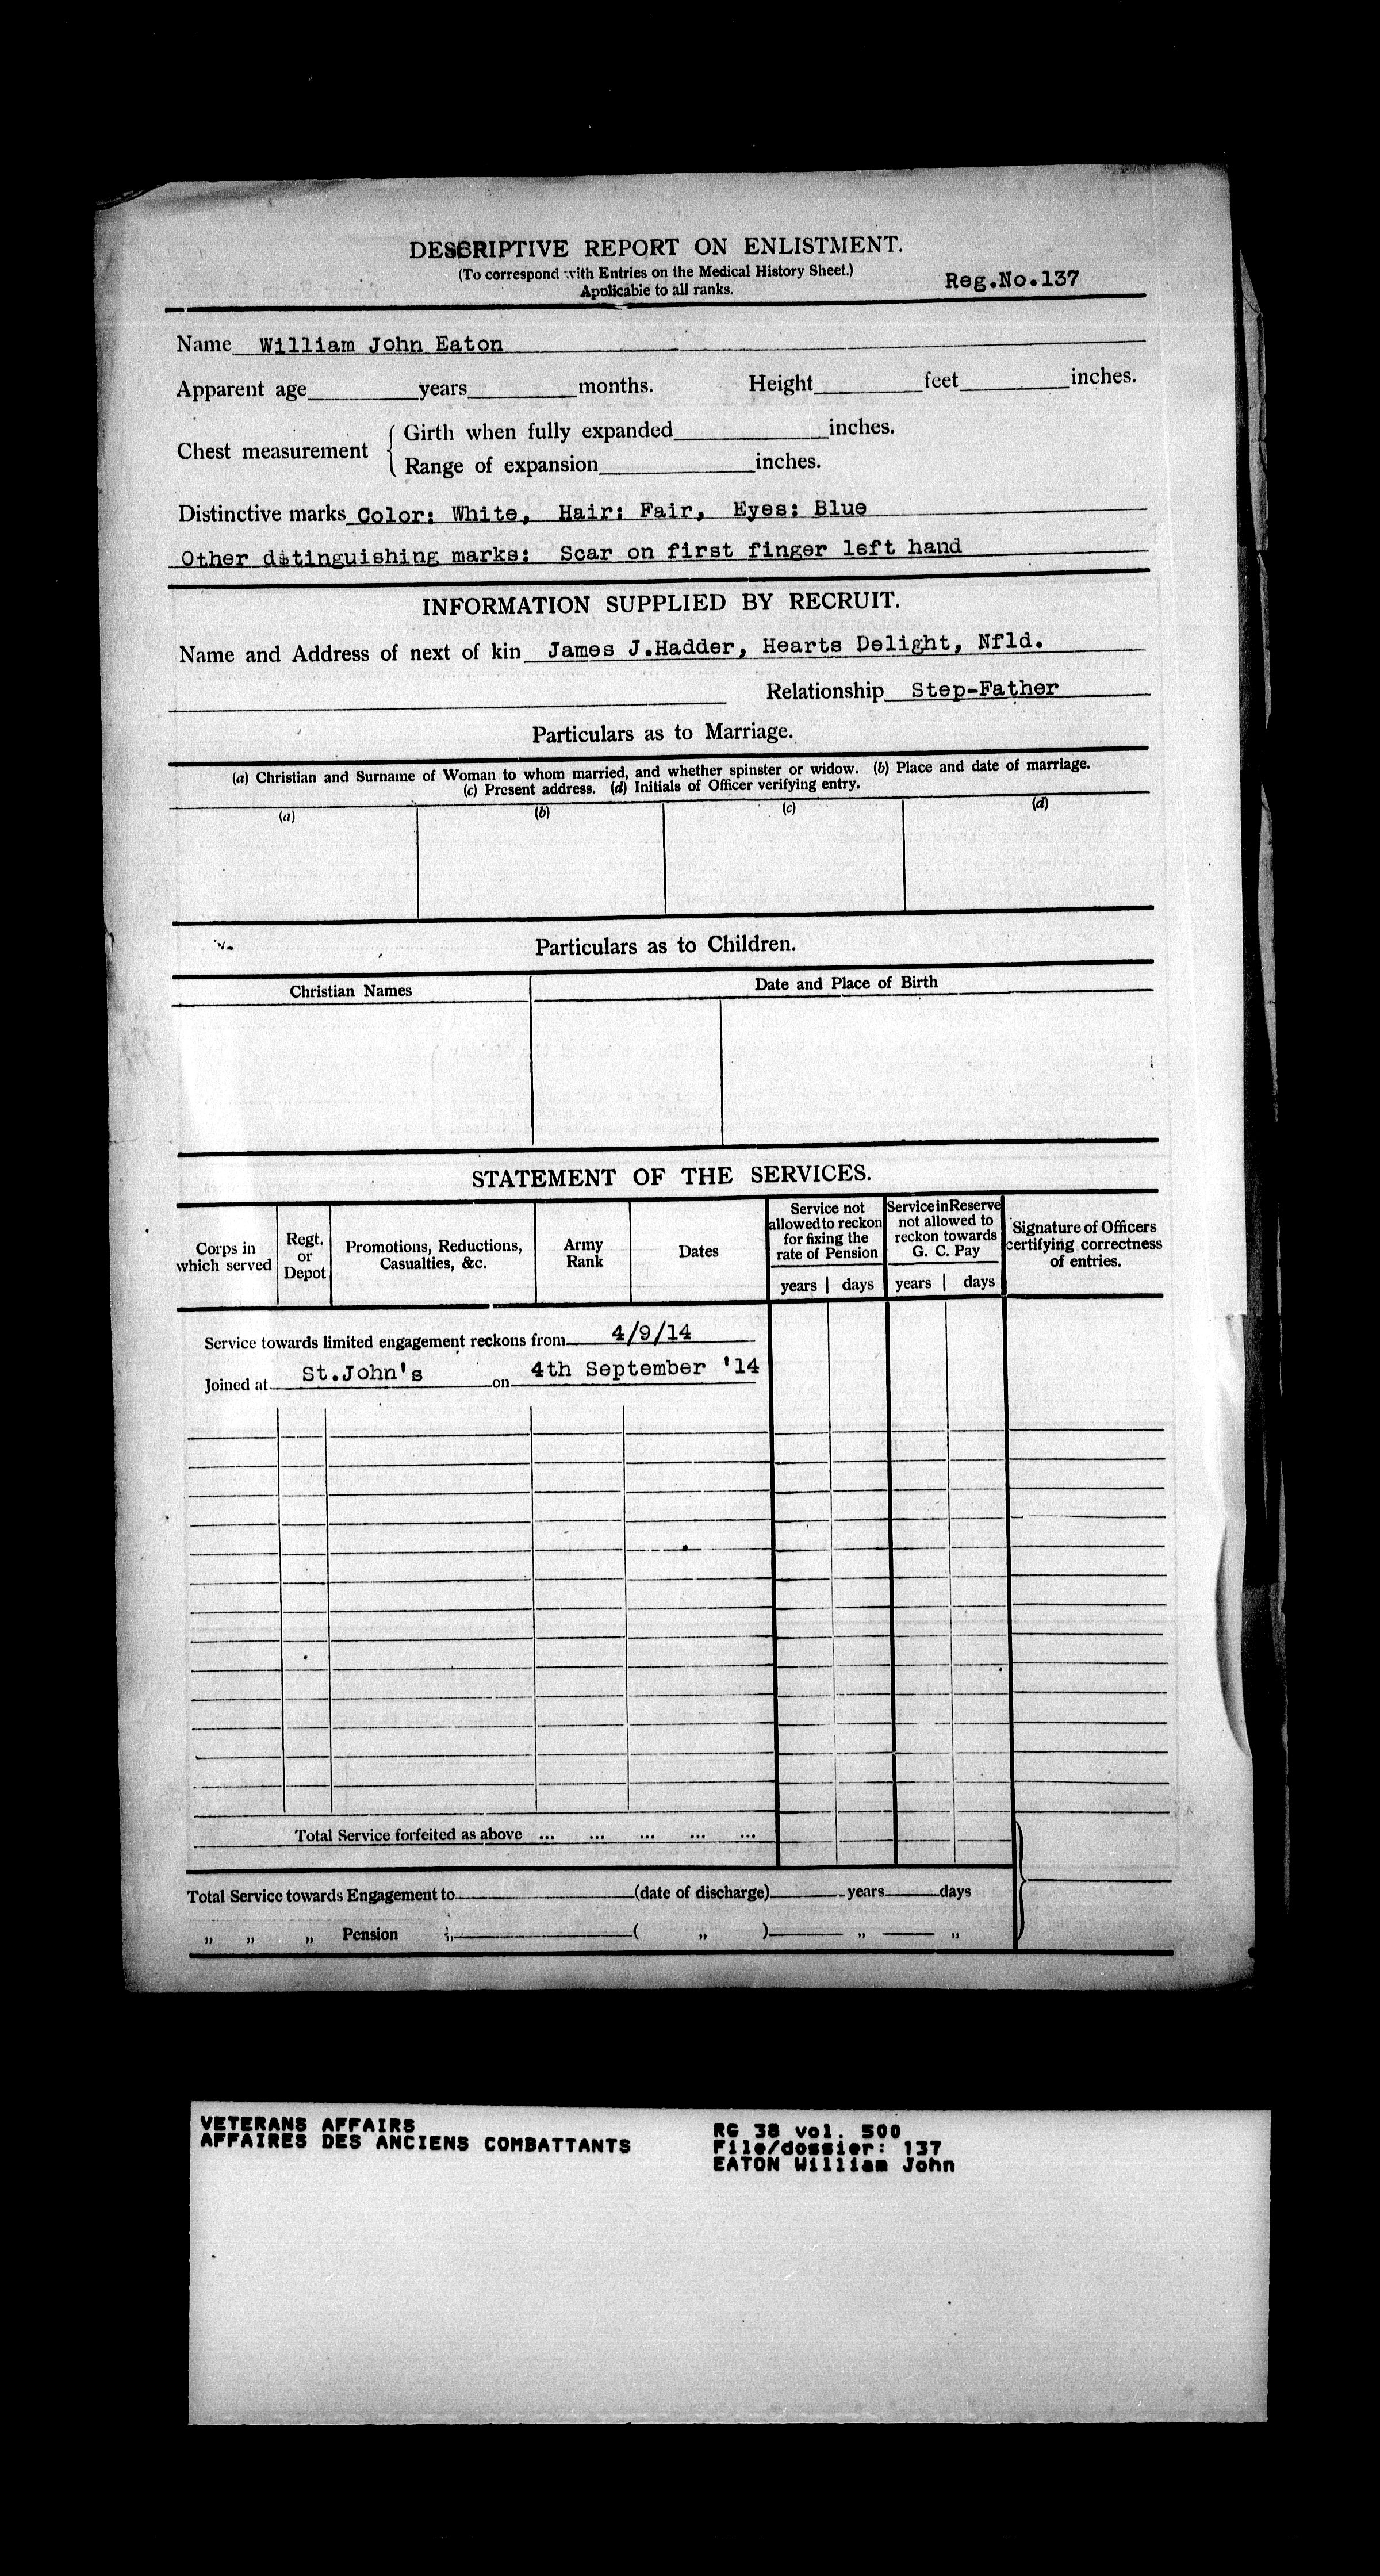 DESCRIPTIVE REPORT ON ENLISTMENT.
(To correspond with Entries on the Medical History Sheet.)
Applicable to all ranks.
Reg.No.137
Name William John Eaton
Apparent age years months. Height feet inches.
Chest measurement
Girth when fully expanded inches.
Range of expansion inches.
Distinctive marks Color: White, Hair: Fair, Eyes: Blue
Other ditinguishing marks: Scar on first finger left hand
INFORMATION SUPPLIED BY RECRUIT.
Name and Address of next of kin James J.Hadder, Hearts Delight, Nfld.
Relationship Step-Father
Particulars as to Marriage.
(a) Christian and Surname of Woman to whom married, and whether spinster or widow. (b) Place and date of marriage.
(c) Present address. (d) Initials of Officer verifying entry.
(a) (b) (c) (d)
Particulars as to Children.
Christian Names Date and Place of Birth
STATEMENT OF THE SERVICES.
Corps in
which served
Regt.
or
Depot
Promotions, Reductions,
Casualties, &c.
Army
Rank
Dates
Service not
allowed to reckon
for fixing the
rate of Pension
years days
Service in Reserve
not allowed to
reckon towards
G. C. Pay
years days
Signature of Officers
certifying correctness
of entries.
Service towards limited engagement reckons from 4/9/14
Joined at St.John's on 4th September '14
Total Service forfeited as above ... ... ... ... ...
Total Service towards Engagement to (date of discharge) years days
„ „ „ Pension „ ( „ ) „ „
VETERANS AFFAIRS
AFFAIRES DES ANCIENS COMBATTANTS
RG 38 vol. 500
File/dossier: 137
EATON William John